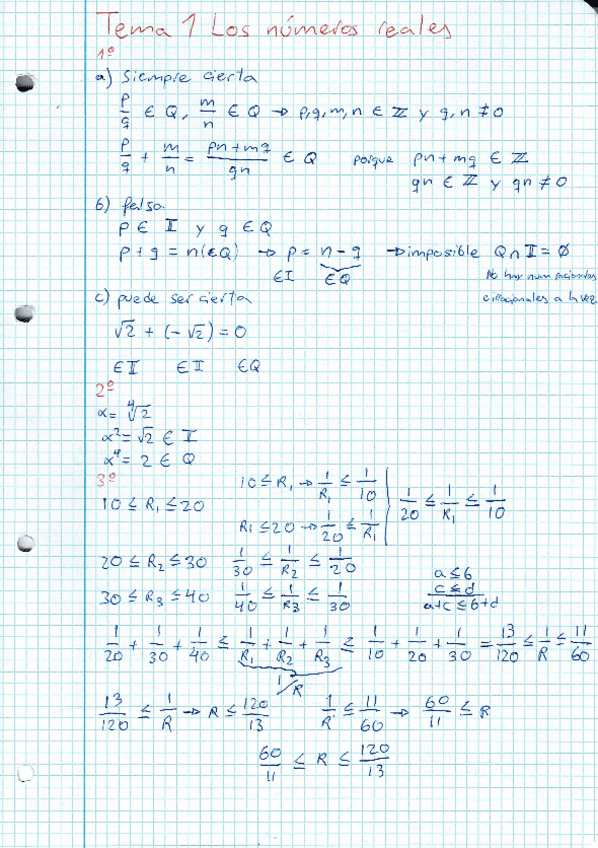 Tema 1 Los números reales
1º
a) Siempre cierta
p/q ∈ Q, m/n ∈ Q → p,q,m,n ∈ Z y q,n ≠ 0
p/q + m/n = (pn+mq)/qn ∈ Q porque pn+mq ∈ Z
qn ∈ Z y qn ≠ 0
b) falsa
p ∈ I y q ∈ Q
p + q = n(∈Q) → p = n - q → imposible Q ∩ I = ∅
∈I ∈Q No hay num racionales
e irracionales a la vez
c) puede ser cierta
√2 + (-√2) = 0
∈ I ∈ I ∈Q
2º
α = ∜2
α² = √2 ∈ I
α⁴ = 2 ∈ Q
3º
10 ≤ R₁ → 1/R₁ ≤ 1/10
10 ≤ R₁ ≤ 20
1/20 ≤ 1/R₁ ≤ 1/10
R₁ ≤ 20 → 1/20 ≤ 1/R₁
20 ≤ R₂ ≤ 30 1/30 ≤ 1/R₂ ≤ 1/20
a ≤ b
30 ≤ R₃ ≤ 40 1/40 ≤ 1/R₃ ≤ 1/30
c ≤ d
a+c ≤ b+d
1/20 + 1/30 + 1/40 ≤ 1/R₁ + 1/R₂ + 1/R₃ ≤ 1/10 + 1/20 + 1/30 = 13/120 ≤ 1/R ≤ 11/60
1/R
13/120 ≤ 1/R → R ≤ 120/13 1/R ≤ 11/60 → 60/11 ≤ R
60/11 ≤ R ≤ 120/13